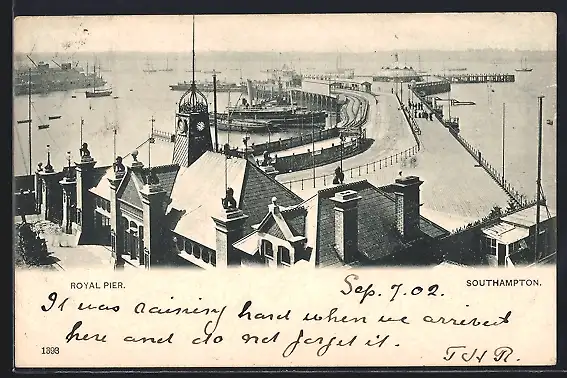 ROYAL PIER.
SOUTHAMPTON.
Sep. 7. 02.
It was raining hard when we arrived
here and do not forget it.
1393
T H R.